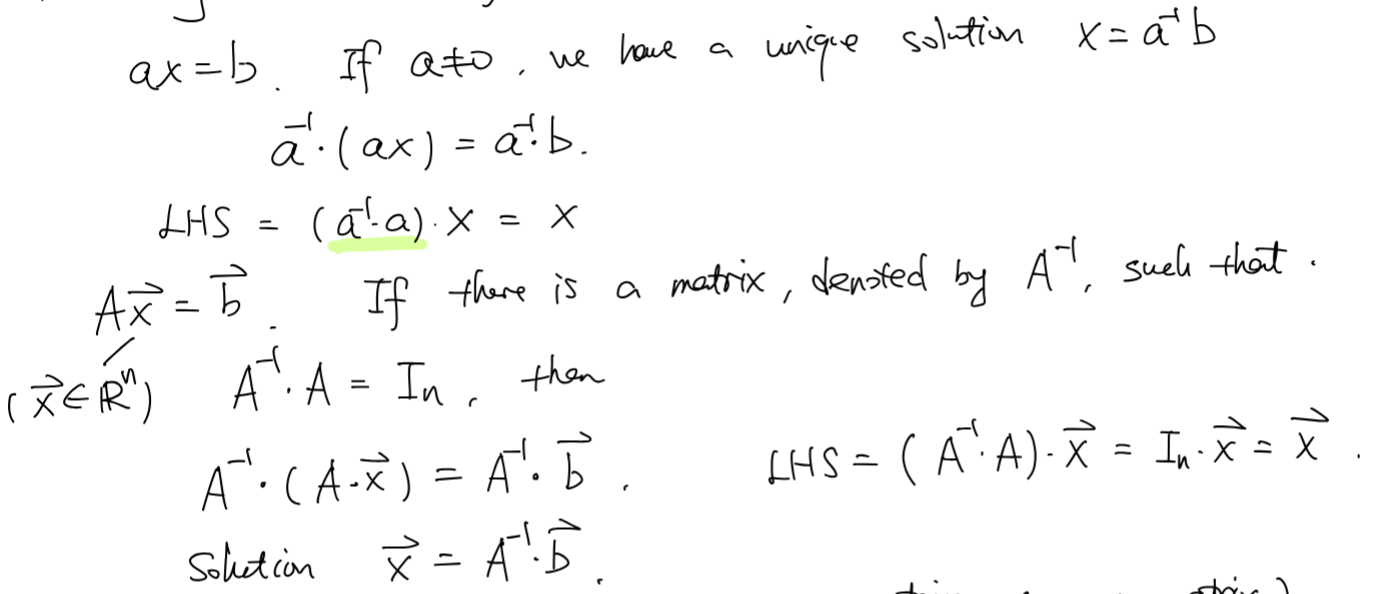 ax = b. If a ≠ 0, we have a unique solution x = a⁻¹b
a⁻¹·(ax) = a⁻¹·b.
LHS = (a⁻¹·a)·x = x
Ax⃗ = b⃗. If there is a matrix, denoted by A⁻¹, such that.
(x⃗ ∈ ℝⁿ) A⁻¹·A = Iₙ, then
A⁻¹·(A·x⃗) = A⁻¹·b⃗. LHS = (A⁻¹·A)·x⃗ = Iₙ·x⃗ = x⃗.
Solution x⃗ = A⁻¹·b⃗.